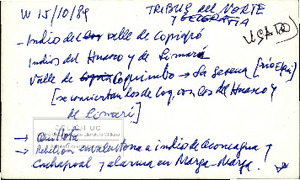 W 15/10/89
TRIBUS del NORTE
Y GEOGRAFIA
USADO
- Indios del valle de Copiapó
Indios del Huasco y de Limarí
Valle de Coquimbo → La Serena
[se conectan los de Coq. con los del Huasco y
de Limarí]
→ Quillota
→ Rebelión indios de Aconcagua y
Cachapoal y alarma en Marga-Marga.